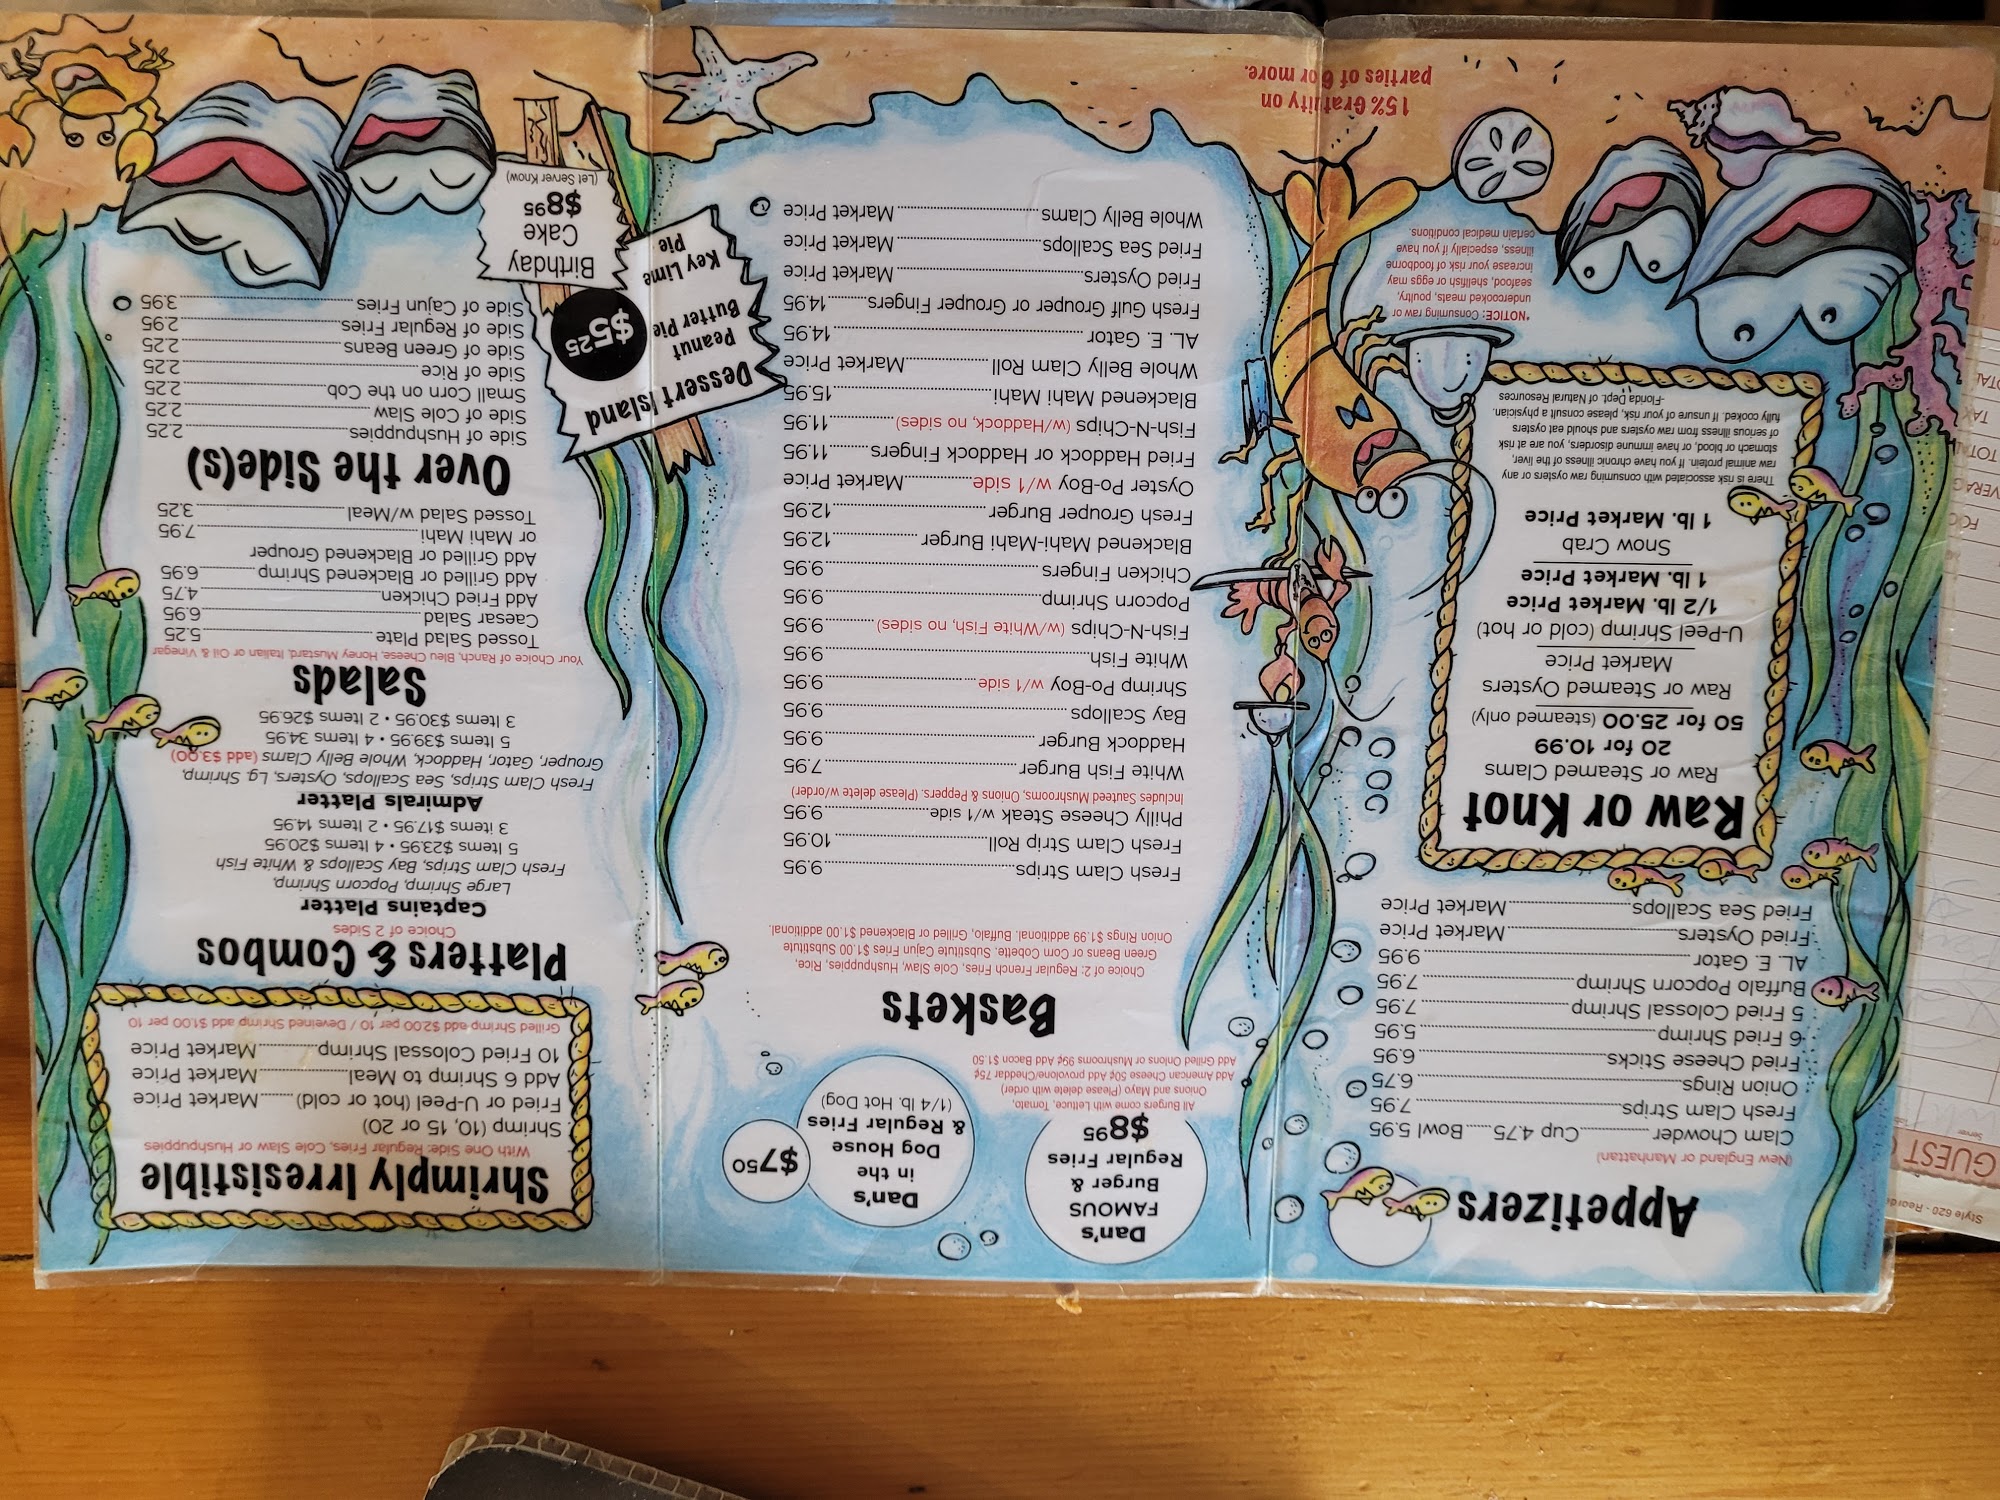 Appetizers
(New England or Manhattan)
Clam Chowder..........Cup 4.75......Bowl 5.95
Fresh Clam Strips..........7.95
Onion Rings..........6.75
Fried Cheese Sticks..........6.95
6 Fried Shrimp..........5.95
5 Fried Colossal Shrimp..........7.95
Buffalo Popcorn Shrimp..........7.95
AL. E. Gator..........9.95
Fried Oysters..........Market Price
Fried Sea Scallops..........Market Price
Raw or Knot
Raw or Steamed Clams
20 for 10.99
50 for 25.00 (steamed only)
Raw or Steamed Oysters
Market Price
U-Peel Shrimp (cold or hot)
1/2 lb. Market Price
1 lb. Market Price
Snow Crab
1 lb. Market Price
There is risk associated with consuming raw oysters or any
raw animal protein. If you have chronic illness of the liver,
stomach or blood, or have immune disorders, you are at risk
of serious illness from raw oysters and should eat oysters
fully cooked. If unsure of your risk, please consult a physician.
-Florida Dept. of Natural Resources
*NOTICE: Consuming raw or
undercooked meats, poultry,
seafood, shellfish or eggs may
increase your risk of foodborne
illness, especially if you have
certain medical conditions.
15% Gratuity on
parties of 6 or more.
Dan's
FAMOUS
Burger &
Regular Fries
$8.95
All Burgers come with Lettuce, Tomato,
Onions and Mayo (Please delete with order)
Add American Cheese 50¢ Add provolone/Cheddar 75¢
Add Grilled Onions or Mushrooms 99¢ Add Bacon $1.50
Dan's
in the
Dog House
& Regular Fries
(1/4 lb. Hot Dog)
$7.50
Baskets
Choice of 2: Regular French Fries, Cole Slaw, Hushpuppies, Rice,
Green Beans or Corn Cobette, Substitute Cajun Fries $1.00 Substitute
Onion Rings $1.99 additional. Buffalo, Grilled or Blackened $1.00 additional.
Fresh Clam Strips..........9.95
Fresh Clam Strip Roll..........10.95
Philly Cheese Steak w/1 side..........9.95
Includes Sauteed Mushrooms, Onions & Peppers. (Please delete w/order)
White Fish Burger..........7.95
Haddock Burger..........9.95
Bay Scallops..........9.95
Shrimp Po-Boy w/1 side..........9.95
White Fish..........9.95
Fish-N-Chips (w/White Fish, no sides)..........9.95
Popcorn Shrimp..........9.95
Chicken Fingers..........9.95
Blackened Mahi-Mahi Burger..........12.95
Fresh Grouper Burger..........12.95
Oyster Po-Boy w/1 side..........Market Price
Fried Haddock or Haddock Fingers..........11.95
Fish-N-Chips (w/Haddock, no sides)..........11.95
Blackened Mahi Mahi..........15.95
Whole Belly Clam Roll..........Market Price
AL. E. Gator..........14.95
Fresh Gulf Grouper or Grouper Fingers..........14.95
Fried Oysters..........Market Price
Fried Sea Scallops..........Market Price
Whole Belly Clams..........Market Price
Shrimply Irresistible
With One Side: Regular Fries, Cole Slaw or Hushpuppies
Shrimp (10, 15 or 20)
Fried or U-Peel (hot or cold)..........Market Price
Add 6 Shrimp to Meal..........Market Price
10 Fried Colossal Shrimp..........Market Price
Grilled Shrimp add $2.00 per 10 / Deveined Shrimp add $1.00 per 10
Platters & Combos
Choice of 2 Sides
Captains Platter
Large Shrimp, Popcorn Shrimp,
Fresh Clam Strips, Bay Scallops & White Fish
5 Items $23.95 • 4 Items $20.95
3 items $17.95 • 2 Items 14.95
Admirals Platter
Fresh Clam Strips, Sea Scallops, Oysters, Lg. Shrimp,
Grouper, Gator, Haddock, Whole Belly Clams (add $3.00)
5 Items $39.95 • 4 Items 34.95
3 Items $30.95 • 2 Items $26.95
Salads
Your Choice of Ranch, Bleu Cheese, Honey Mustard, Italian or Oil & Vinegar
Tossed Salad Plate..........5.25
Caesar Salad..........6.95
Add Fried Chicken..........4.75
Add Grilled or Blackened Shrimp..........6.95
Add Grilled or Blackened Grouper
or Mahi Mahi..........7.95
Tossed Salad w/Meal..........3.25
Over the Side(s)
Side of Hushpuppies..........2.25
Side of Cole Slaw..........2.25
Small Corn on the Cob..........2.25
Side of Rice..........2.25
Side of Green Beans..........2.25
Side of Regular Fries..........2.95
Side of Cajun Fries..........3.95
Dessert Island
Peanut
Butter Pie
Key Lime
Pie
$5.25
Birthday
Cake
$8.95
(Let Server Know)
Style 620
GUEST
Server
TAX